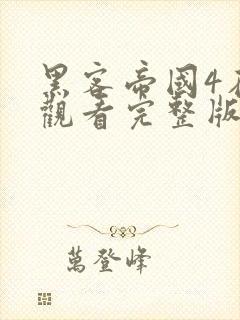 黑客帝國4在
觀看完整版
萬登峰